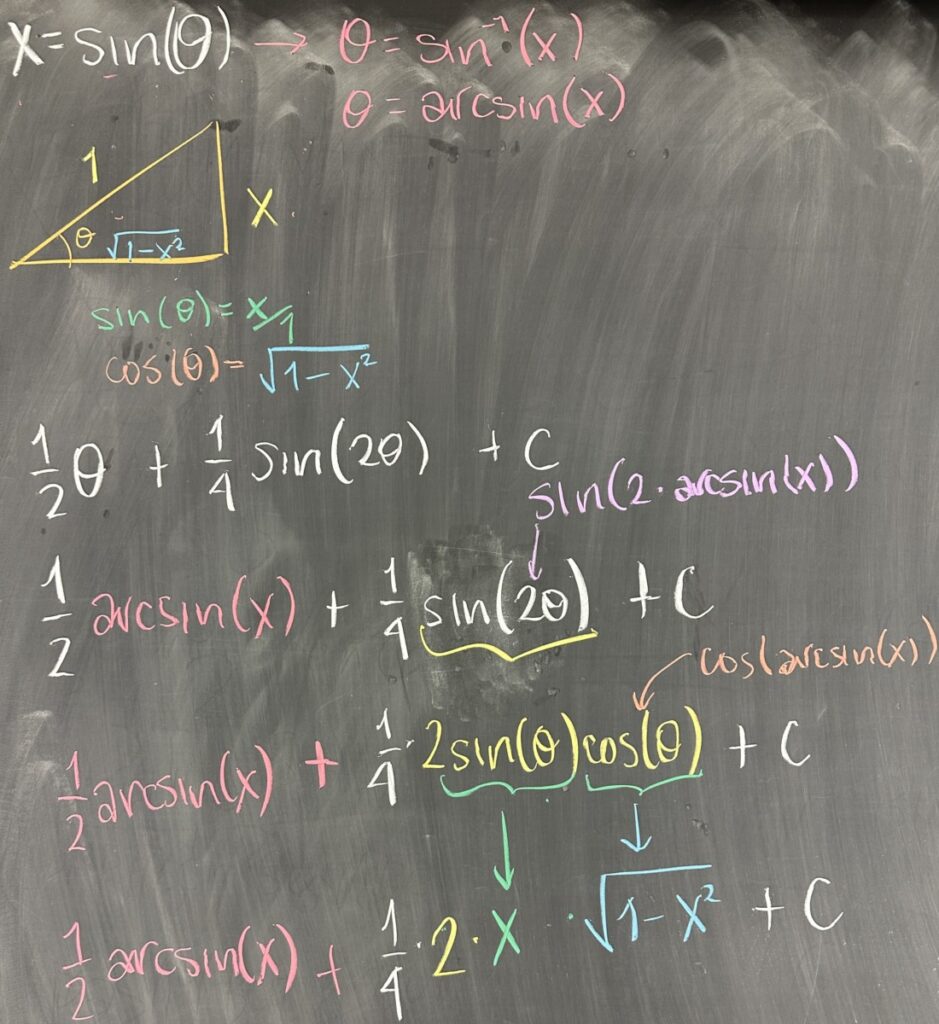 x = sin(θ) → θ = sin⁻¹(x)
θ = arcsin(x)
1
x
θ √(1-x²)
sin(θ) = x/1
cos(θ) = √(1-x²)
1/2 θ + 1/4 sin(2θ) + C
sin(2·arcsin(x))
1/2 arcsin(x) + 1/4 sin(2θ) + C
cos(arcsin(x))
1/2 arcsin(x) + 1/4 · 2sin(θ)cos(θ) + C
1/2 arcsin(x) + 1/4 · 2 · x · √(1-x²) + C